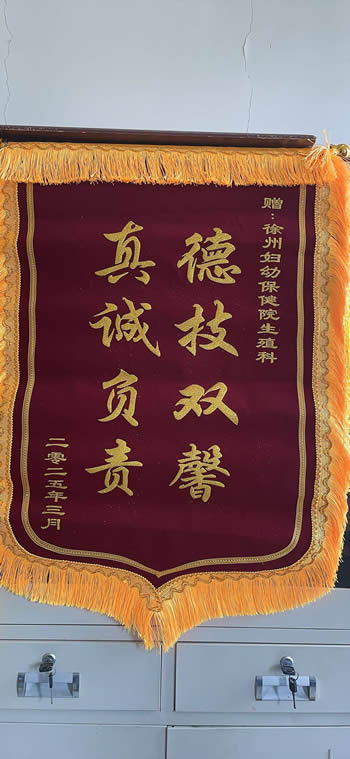 赠：徐州妇幼保健院生殖科
德技双馨
真诚负责
二零二五年三月